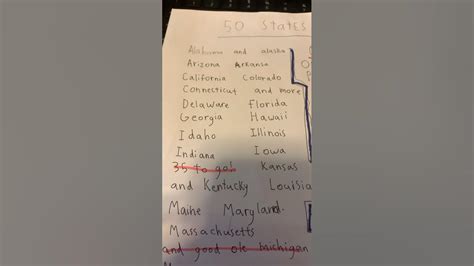 50 States
Alabama and alaska
Arizona Arkansa
California Colorado
Connecticut and more
Delaware Florida
Georgia Hawaii
Idaho Illinois
Indiana Iowa
35 to go! Kansas
and Kentucky Louisia
Maine Maryland.
Massachusetts
and good ole michigan